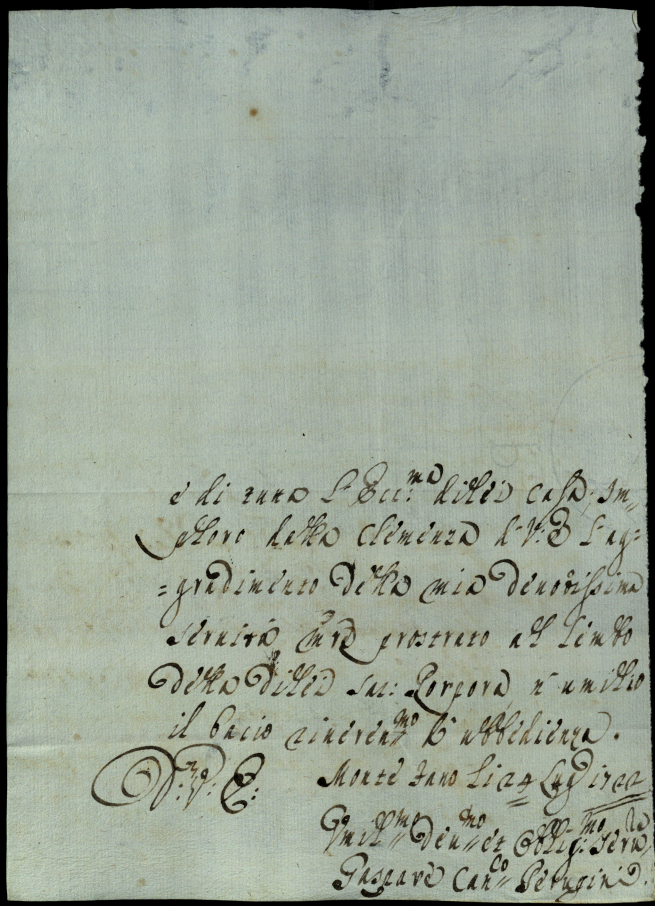 e di tutta l'Ecc:ma di lei Casa; Im=
=ploro dalla Clemenza d'V: E l'ag=
=gradimento della mia devotissima
servitù, prostrato al lembo
della di lei sac: Porpora n' umilio
il bacio riveren.mo l'ubbedienza.
D: V: E: Monte Fano li 24 Lug 1722
Umil.mo Dev.mo et Obblig.mo Serv.re
Gaspare Can.co Perugini